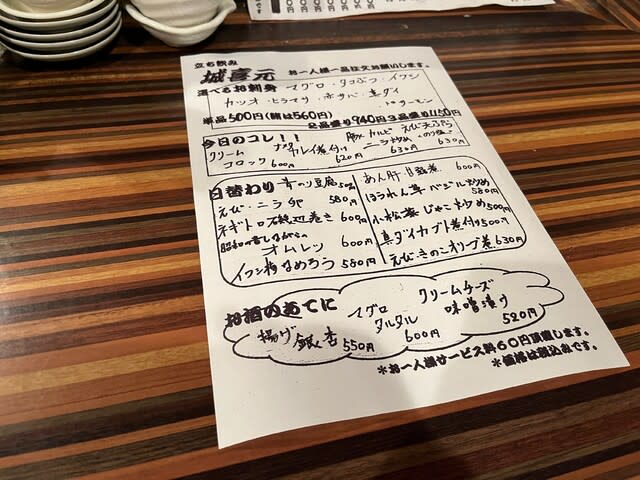 立ち飲み
城喜元 お一人様一品注文お願いします。
選べるお刺身 マグロ・タコぶつ・イワシ
カツオ・ヒラマサ・赤サバ・真ダイ
・トロサーモン
単品500円(鮪は560円) 2品盛り940円 3品盛り1150円
今日のコレ！！
クリームコロッケ 600円
ナメタカレイ煮付け 620円
豚カルビニラ炒め 630円
えび天ぷら 630円
日替わり
青のり豆腐 500円
えび・ニラ卵 580円
ネギトロ磯辺巻き 600円
昭和の昔しながらのオムレツ 600円
イワシ梅なめろう 580円
あん肝甘露煮 600円
ほうれん草バジル炒め 580円
小松菜じゃこ炒め 500円
真ダイカブト煮付け 500円
えび・きのこオリーブ煮 630円
お酒のあてに
揚げ銀杏 550円
マグロタルタル 600円
クリームチーズ味噌漬け 520円
＊お一人様サービス料60円頂戴します。
＊価格は税込みです。